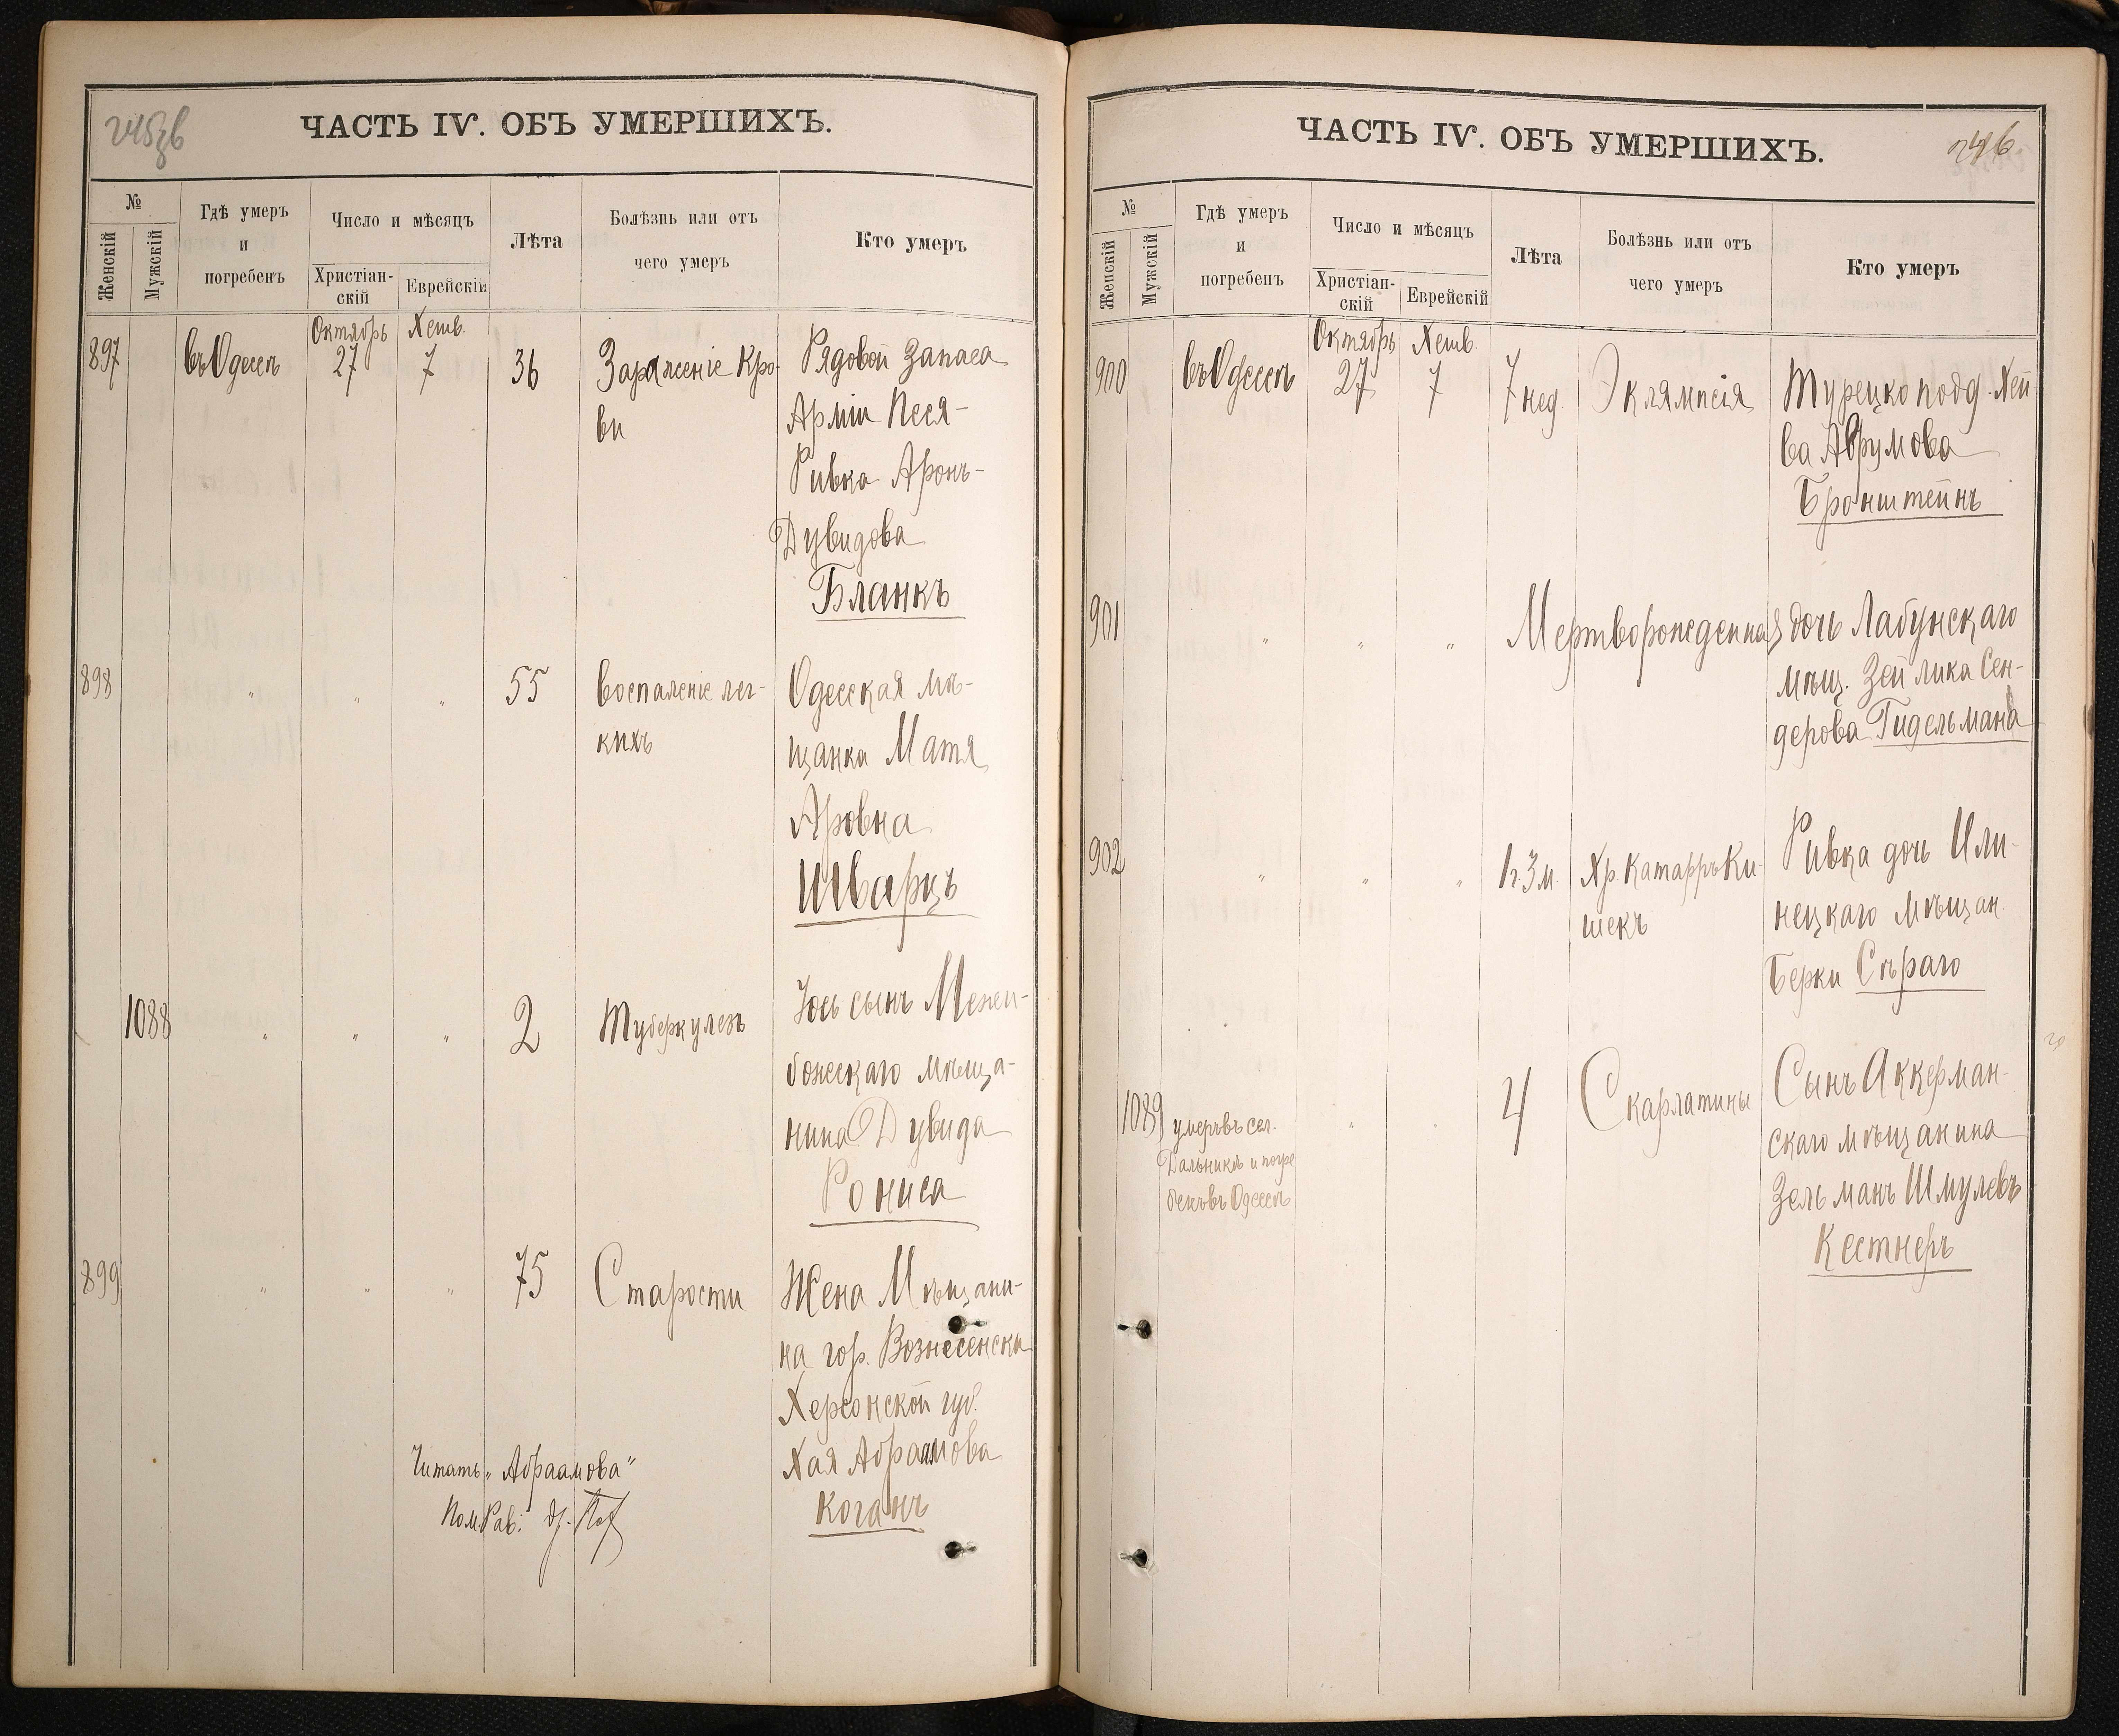 245зв
ЧАСТЬ IV. ОБЪ УМЕРШИХЪ.
№
Женскій
Мужскій
Гдѣ умеръ
и
погребенъ
Число и мѣсяцъ
Христіан-
скій
Еврейскій
Лѣта
Болѣзнь или отъ
чего умеръ
Кто умеръ
Октябрь Хешв.
897 въ Одессѣ 27 7 36 Зараженіе Кро- Рядовой Запаса
ви Арміи Песя-
Ривка Аронъ-
Дувидова
Бланкъ
898 " " " 55 Воспаленіе лег- Одесская мѣ-
кихъ щанка Матя
Аровна
Шварцъ
1088 " " " 2 Туберкулезъ Іось сынъ Межи-
божскаго мѣща-
нина Дувида
Рониса
899 " " " 75 Старости Жена Мѣщани-
на гор. Вознесенска
Херсонской губ.
Хая Абраамова
Коганъ
Читать „Абраамова"
Пом. Рав:
246
ЧАСТЬ IV. ОБЪ УМЕРШИХЪ.
№
Женскій
Мужскій
Гдѣ умеръ
и
погребенъ
Число и мѣсяцъ
Христіан-
скій
Еврейскій
Лѣта
Болѣзнь или отъ
чего умеръ
Кто умеръ
Октябрь Хешв.
900 въ Одессѣ 27 7 7 нед. Эклямпсія Турецко подд. Хей
ва Аврумова
Бронштейнъ
901 " " " Мертворожденная дочь Лабунскаго
мѣщ. Зейлика Сен-
дерова Гидельмана
902 " " " 1г. 3м. Хр. Катарръ Ки- Ривка дочь Или-
шекъ нецкаго мѣщан.
Берки Сѣраго
1089 умеръ въ сел. " " 4 Скарлатины Сынъ Аккерман-
Дальникѣ и погре скаго мѣщанина
бенъ въ Одессѣ Зельманъ Шмулевъ
Кестнеръ